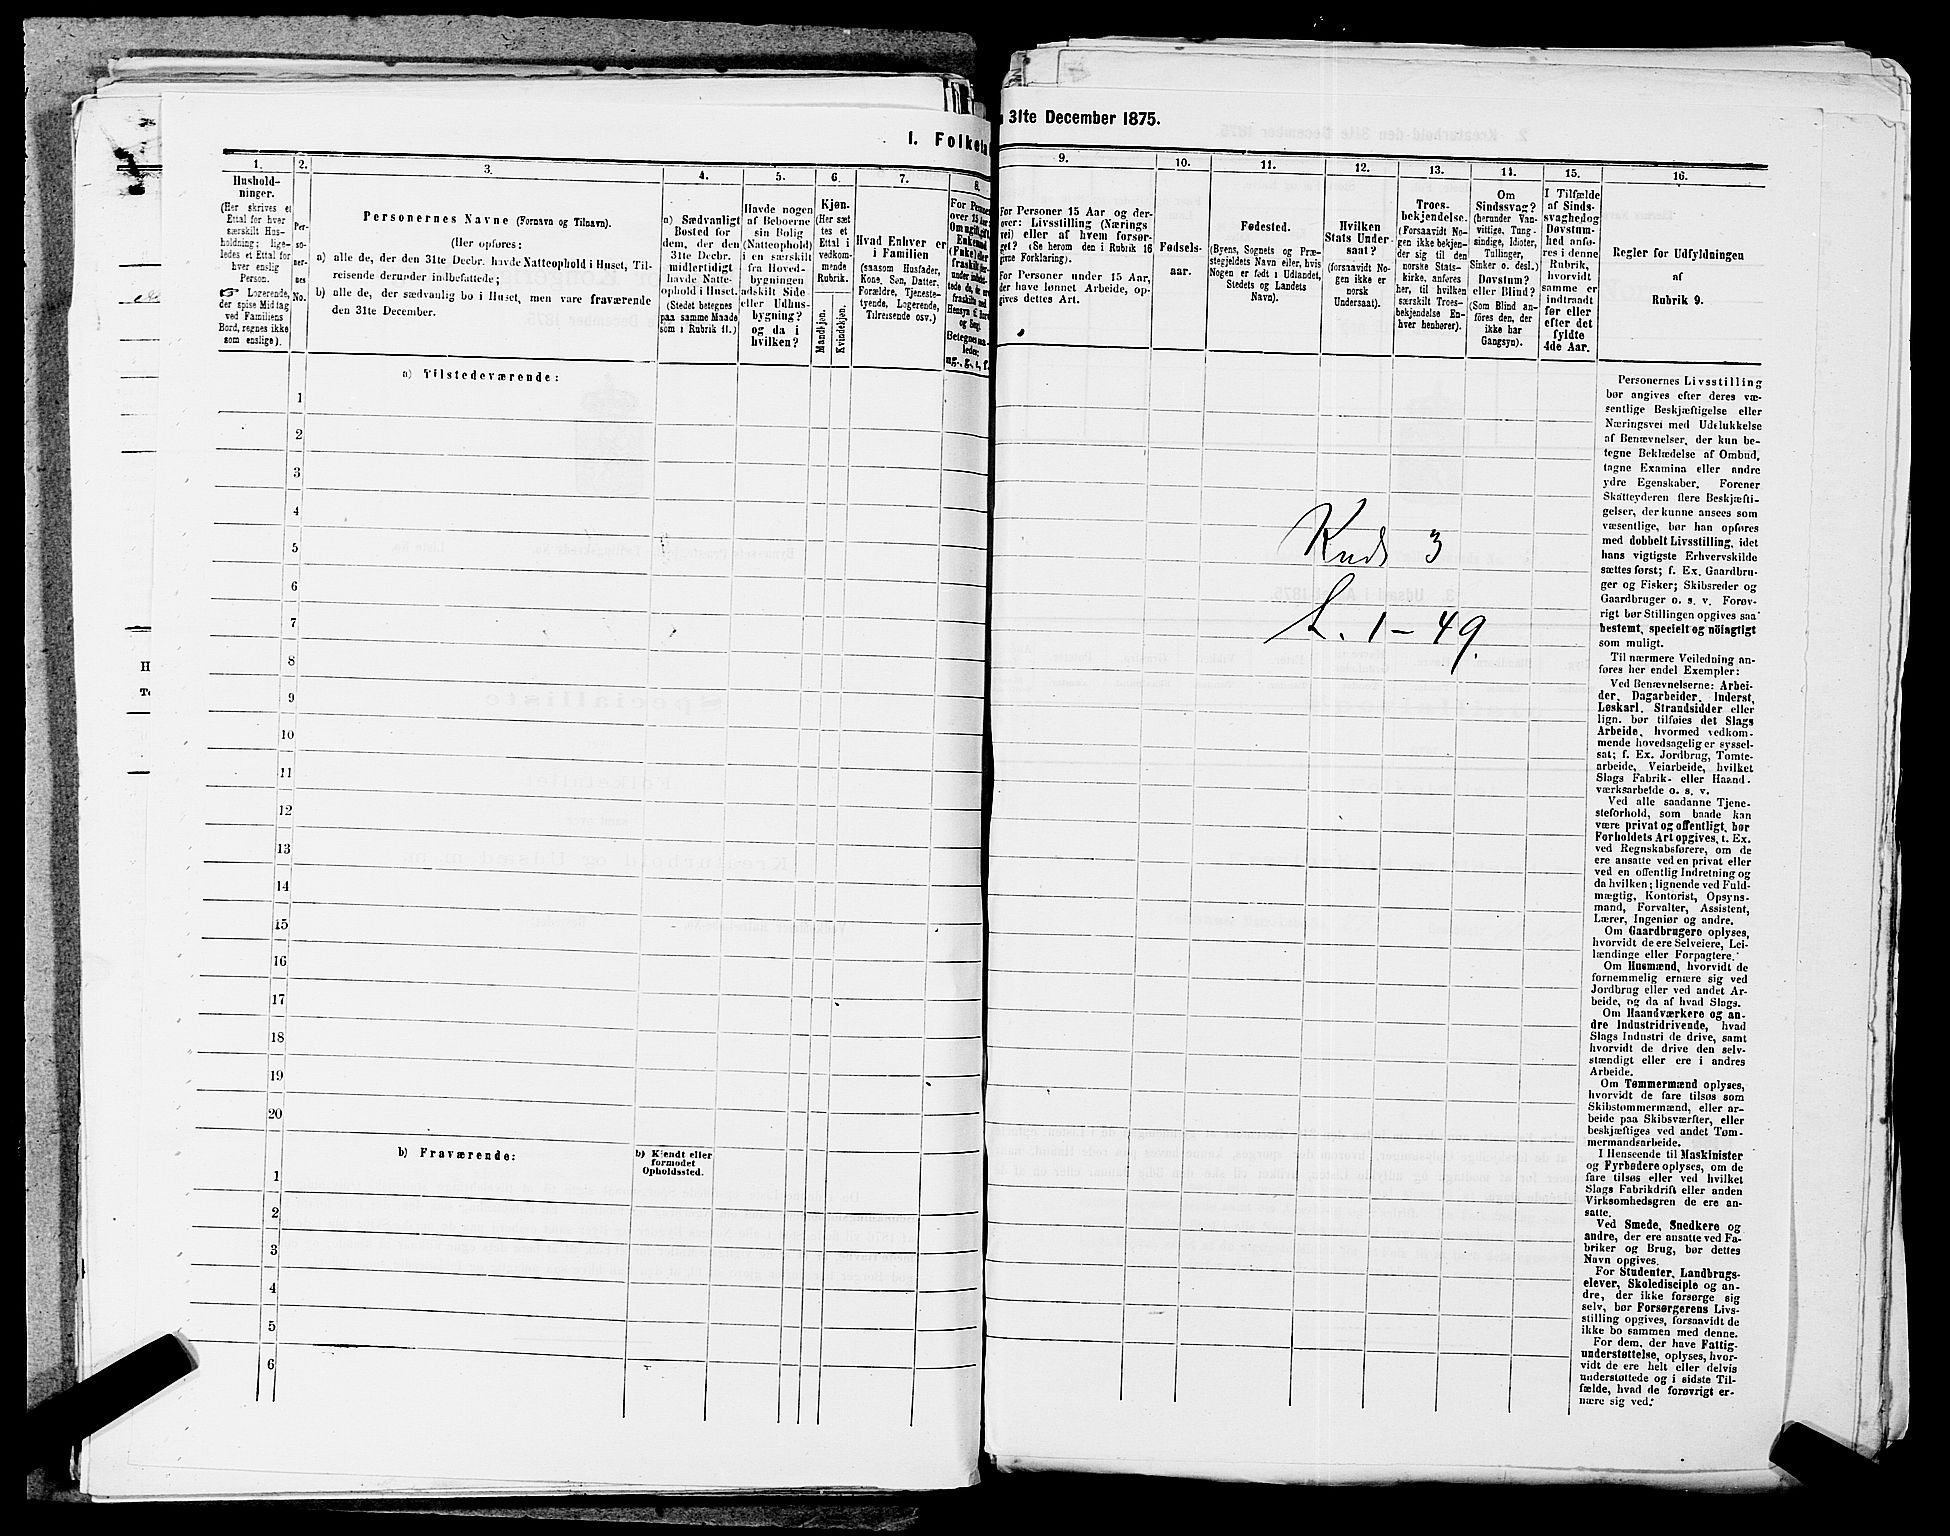 1. Folketa
31te December 1875.
1.
Hushold-
ninger.
(Her skrives et
Ettal for hver
særskilt Hus-
holdning; lige-
ledes et Ettal for
hver enslig
Person.
☞ Logerende,
der spise Middag
ved Familiens
Bord, regnes ikke
som enslige).
2.
Per-
so-
ner-
nes
No.
3.
Personernes Navne (Fornavn og Tilnavn).
(Her opføres:
a) alle de, der den 31te Decbr. havde Natteophold i Huset, Til-
reisende derunder indbefattede;
b) alle de, der sædvanlig bo i Huset, men vare fraværende
den 31te December.
4.
a) Sædvanligt
Bosted for
dem, der den
31te Decbr.
midlertidigt
havde Natte-
ophold i Huset.
(Stedet betegnes
paa samme Maade
som i Rubrik 11.)
5.
Havde nogen
af Beboerne
sin Bolig
(Natteophold)
i en særskilt
fra Hoved-
bygningen
adskilt Side
eller Udhus-
bygning?
og da i
hvilken?
6.
Kjøn.
(Her sæt
tes et
Ettal i
vedkom-
mende
Rubrik.
Mandkjøn.
Kvindekjøn.
7.
Hvad Enhver er
i Familien
(saasom Husfader,
Kone, Søn, Datter,
Forældre, Tjeneste-
tyende, Logerende,
Tilreisende osv.)
8.
For Personer
over 15 Aar:
Om ugift, gift,
Enkemand
(Enke) eller
fraskilt
Betegnes saa-
ledes:
ug., g., e., f.
9.
For Personer 15 Aar og der-
over: Livsstilling (Nærings
vei) eller af hvem forsør-
get? (Se herom den i Rubrik 16
givne Forklaring).
For Personer under 15 Aar,
der have lønnet Arbeide, op-
gives dettes Art.
10.
Fødsels-
aar.
11.
Fødested.
(Byens, Sognets og Præ-
stegjeldets Navn eller, hvis
Nogen er født i Udlandet,
Stedets og Landets
Navn).
12.
Hvilken
Stats Under-
saat?
(forsaavidt No-
gen ikke er
norsk
Undersaat).
13.
Troes-
bekjendelse.
(Forsaavidt No-
gen ikke bekjen-
der sig til den
norske Stats-
kirke, anføres
her, til hvilken
særskilt Troes-
bekjendelse En-
hver henhører).
14.
Om
Sindssvag?
(herunder Van-
vittige, Tung-
sindige, Idioter,
Tullinger,
Sinker o. desl.)
Døvstum?
eller Blind?
(Som Blind an-
føres den, der
ikke har
Gangsyn).
15.
I Tilfælde
af Sinds-
svaghed og
Døvstum-
hed anfø-
res i denne
Rubrik,
hvorvidt
samme er
indtraadt
før eller
efter det
fyldte
4de Aar.
16.
Regler for Udfyldningen
af
Rubrik 9.
a) Tilstedeværende:
1
2
3
4
5
6
7
8
9
10
11
12
13
14
15
16
17
18
19
20
b) Fraværende:
b) Kjendt eller
formodet
Opholdssted.
1
2
3
4
5
6
Knds 3
L. 1 – 49.
Personernes Livsstilling
bør angives efter deres væ-
sentlige Beskjæftigelse eller
Næringsvei med Udelukkelse
af Benævnelser, der kun be-
tegne Beklædelse af Ombud,
tagne Examina eller andre
ydre Egenskaber. Forener
Skatteyderen flere Beskjæfti-
gelser, der kunne ansees som
væsentlige, bør han opføres
med dobbelt Livsstilling, idet
hans vigtigste Erhvervskilde
sættes først; f. Ex. Gaardbru-
ger og Fisker; Skibsreder og
Gaardbruger o. s. v. Forøv-
rigt bør Stillingen opgives saa
bestemt, specielt og nöiagtigt
som muligt.
Til nærmere Veiledning an-
føres her endel Exempler:
Ved Benævnelserne: Arbei-
der, Dagarbeider, Inderst,
Løskarl, Strandsidder eller
lign. bør tilføies det Slags
Arbeide, hvormed vedkom-
mende hovedsagelig er syssel-
sat; f. Ex. Jordbrug, Tomte-
arbeide, Veiarbeide, hvilket
Slags Fabrik- eller Haand-
værksarbeide o. s. v.
Ved alle saadanne Tjene-
steforhold, som baade kan
være privat og offentligt, bør
Forholdets Art opgives, t. Ex.
ved Regnskabsførere, om de
ere ansatte ved en privat eller
ved en offentlig Indretning og
da hvilken; lignende ved Fuld-
mægtig, Kontorist, Opsyns-
mand, Forvalter, Assistent,
Lærer, Ingeniør og andre.
Om Gaardbrugere oplyses,
hvorvidt de ere Selveiere, Lei-
lændinge eller Forpagtere.
Om Husmænd, hvorvidt de
fornemmelig ernære sig ved
Jordbrug eller ved andet Ar-
beide, og da af hvad Slags.
Om Haandværkere og an-
dre Industridrivende, hvad
Slags Industri de drive, samt
hvorvidt de drive den selv-
stændigt eller ere i andres
Arbeide.
Om Tømmermænd oplyses,
hvorvidt de fare tilsøs som
Skibstømmermænd, eller ar-
beide paa Skibsværfter, eller
beskjæftiges ved andet Tøm-
mermandsarbeide.
I Henseende til Maskinister
og Fyrbødere oplyses, om de
fare tilsøs eller ved hvilket
Slags Fabrikdrift eller anden
Virksomhedsgren de ere an-
satte.
Ved Smede, Snedkere og
andre, der ere ansatte ved Fa-
briker og Brug, bør dettes
Navn opgives.
For Studenter, Landbrugs-
elever, Skoledisciple og an-
dre, der ikke forsørge sig
selv, bør Forsørgerens Livs-
stilling opgives, forsaavidt de
ikke bo sammen med denne.
For dem, der have Fattig-
understøttelse, oplyses, hvor-
vidt de ere helt eller delvis
understøttede og i sidste Til-
fælde, hvad de forøvrigt er-
nære sig ved.